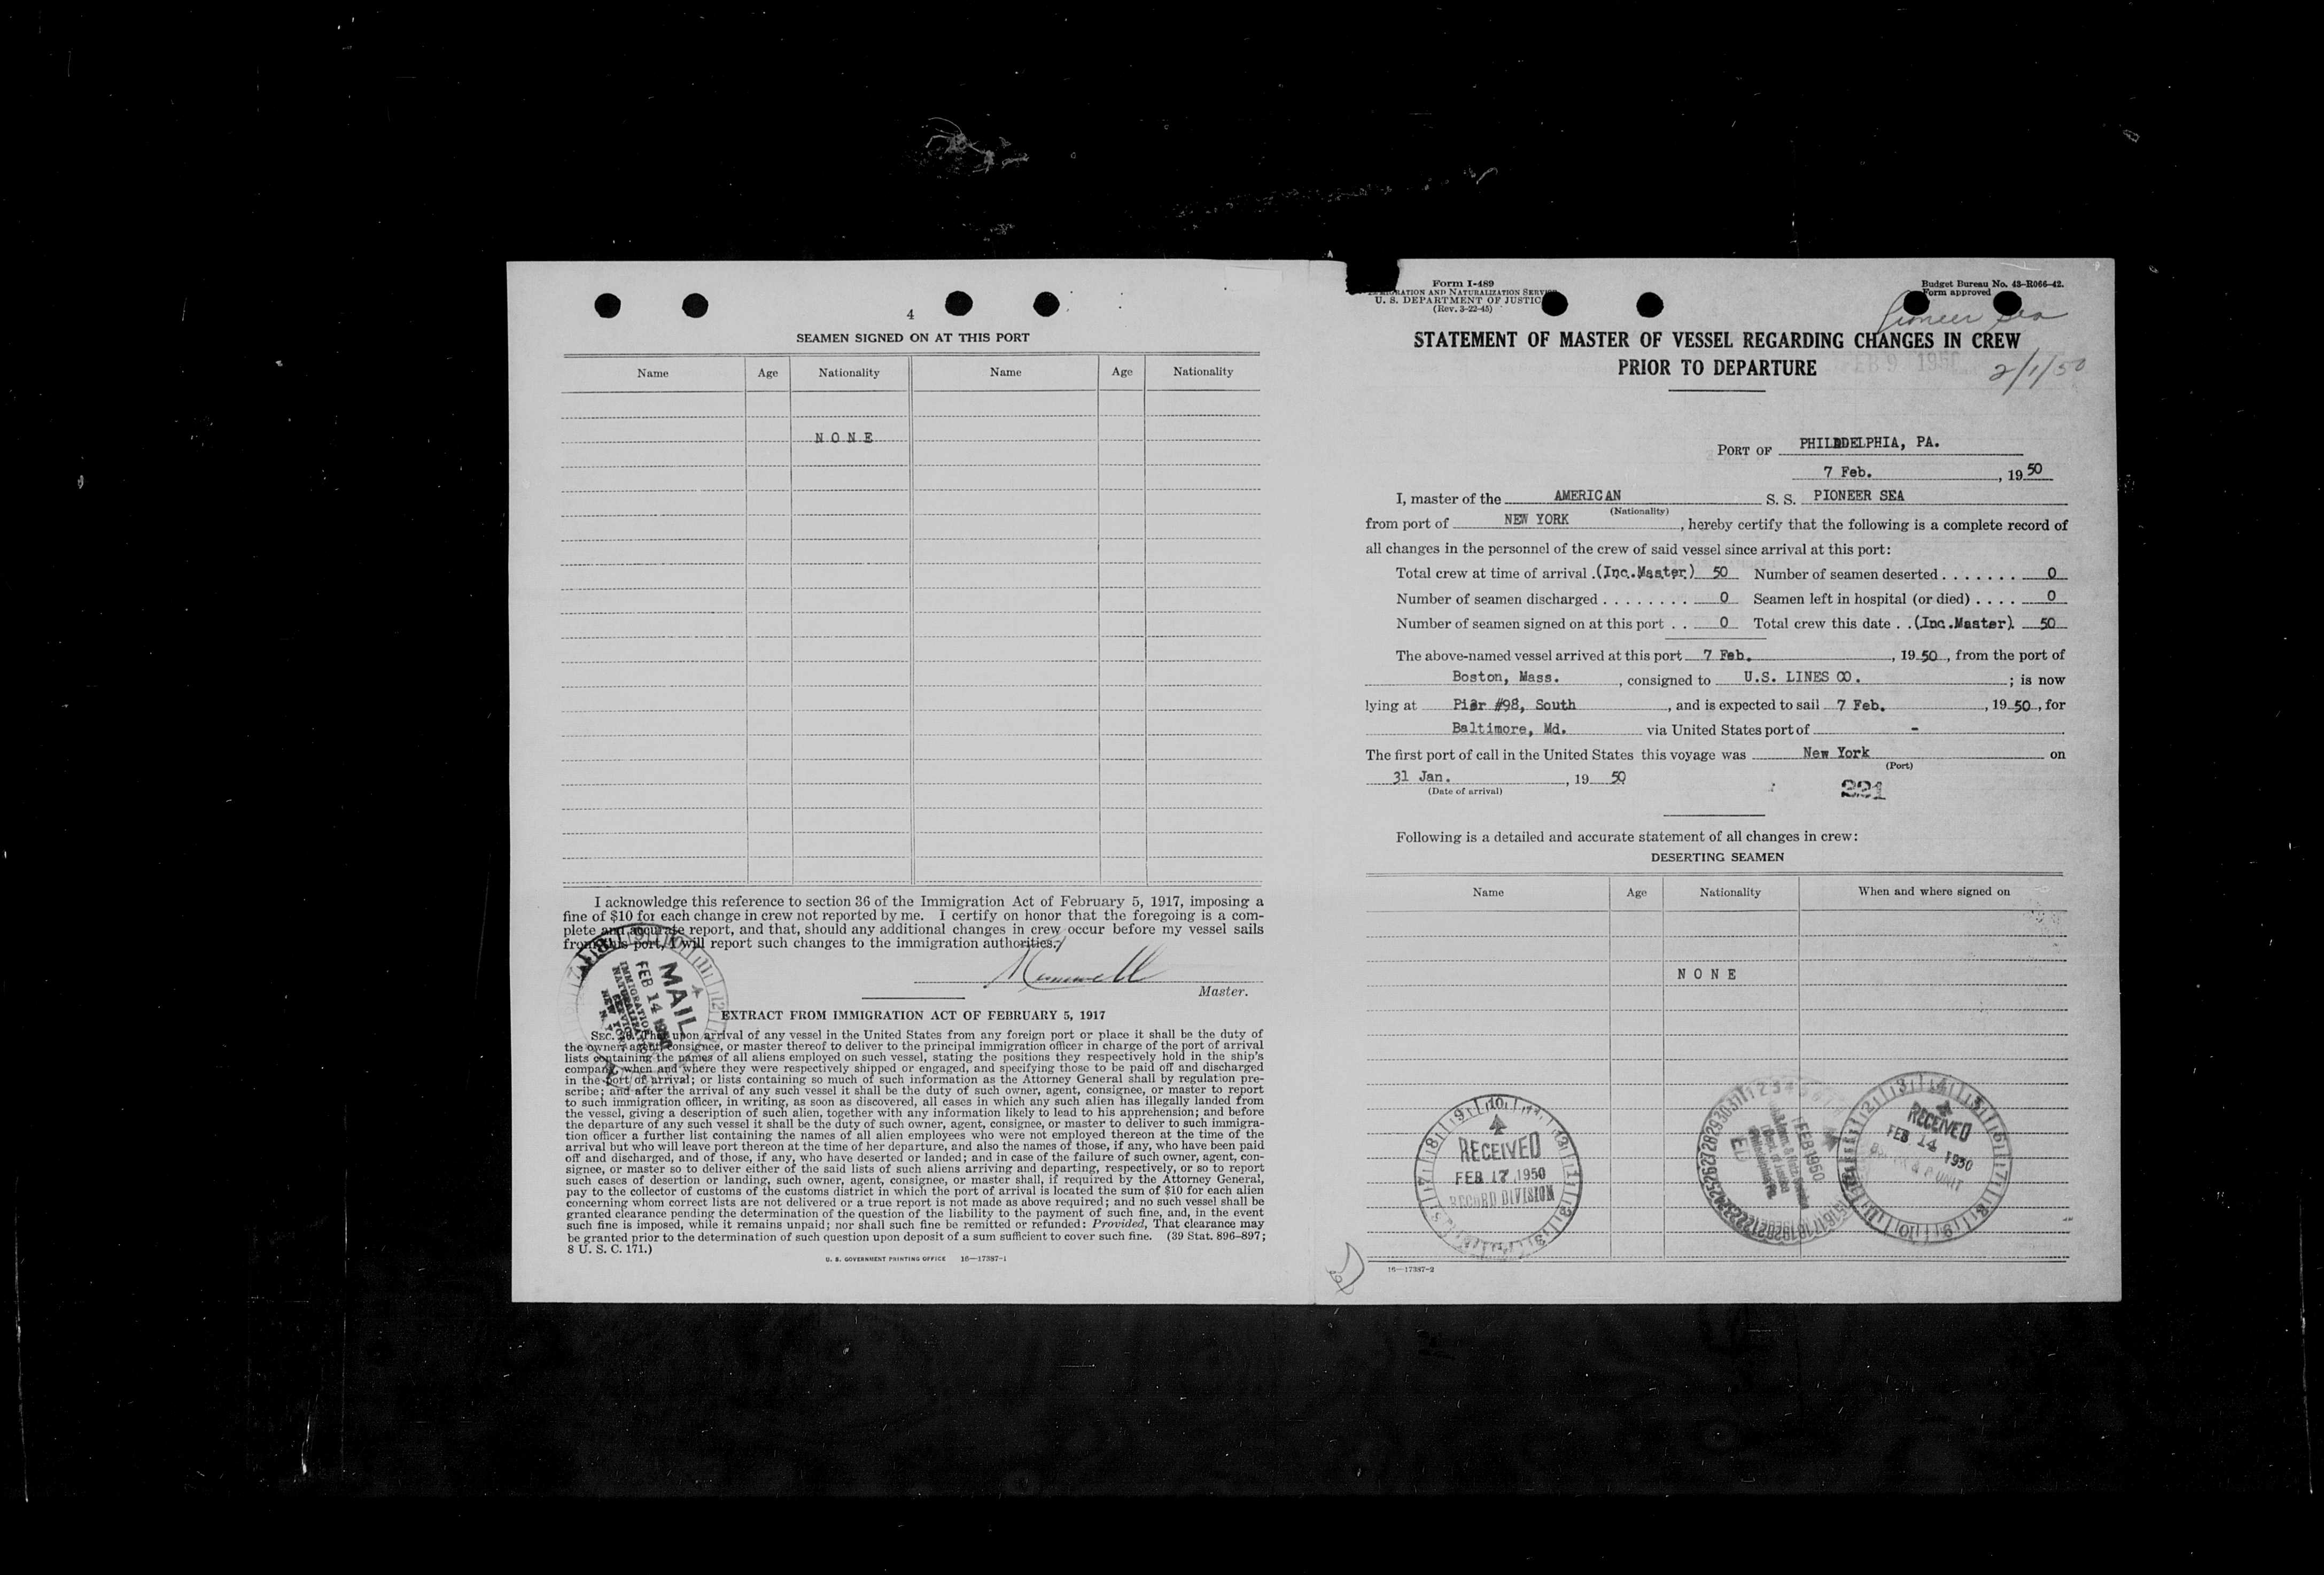 4
SEAMEN SIGNED ON AT THIS PORT
Name Age Nationality Name Age Nationality
NONE
I acknowledge this reference to section 36 of the Immigration Act of February 5, 1917, imposing a
fine of $10 for each change in crew not reported by me. I certify on honor that the foregoing is a com-
plete and accurate report, and that, should any additional changes in crew occur before my vessel sails
from this port, I will report such changes to the immigration authorities.
Master.
MAIL
FEB 14
IMMIGRATION
NATURALIZATION
SERVICE
NEW YORK
N. Y.
EXTRACT FROM IMMIGRATION ACT OF FEBRUARY 5, 1917
SEC. 36. That upon arrival of any vessel in the United States from any foreign port or place it shall be the duty of
the owner, agent, consignee, or master thereof to deliver to the principal immigration officer in charge of the port of arrival
lists containing the names of all aliens employed on such vessel, stating the positions they respectively hold in the ship's
company, when and where they were respectively shipped or engaged, and specifying those to be paid off and discharged
in the port of arrival; or lists containing so much of such information as the Attorney General shall by regulation pre-
scribe; and after the arrival of any such vessel it shall be the duty of such owner, agent, consignee, or master to report
to such immigration officer, in writing, as soon as discovered, all cases in which any such alien has illegally landed from
the vessel, giving a description of such alien, together with any information likely to lead to his apprehension; and before
the departure of any such vessel it shall be the duty of such owner, agent, consignee, or master to deliver to such immigra-
tion officer a further list containing the names of all alien employees who were not employed thereon at the time of the
arrival but who will leave port thereon at the time of her departure, and also the names of those, if any, who have been paid
off and discharged, and of those, if any, who have deserted or landed; and in case of the failure of such owner, agent, con-
signee, or master so to deliver either of the said lists of such aliens arriving and departing, respectively, or so to report
such cases of desertion or landing, such owner, agent, consignee, or master shall, if required by the Attorney General,
pay to the collector of customs of the customs district in which the port of arrival is located the sum of $10 for each alien
concerning whom correct lists are not delivered or a true report is not made as above required; and no such vessel shall be
granted clearance pending the determination of the question of the liability to the payment of such fine, and, in the event
such fine is imposed, while it remains unpaid; nor shall such fine be remitted or refunded: Provided, That clearance may
be granted prior to the determination of such question upon deposit of a sum sufficient to cover such fine. (39 Stat. 896–897;
8 U. S. C. 171.)
U. S. GOVERNMENT PRINTING OFFICE 16—17387-1
Form I-489
AND NATURALIZATION
U. S. DEPARTMENT OF JUSTICE
(Rev. 3-22-45)
Budget Bureau No. 43-R066-42.
Form approved
Pioneer Sea
STATEMENT OF MASTER OF VESSEL REGARDING CHANGES IN CREW
PRIOR TO DEPARTURE
FEB 9 1950
2/1/50
PORT OF PHILADELPHIA, PA.
7 Feb. , 19 50
I, master of the AMERICAN S. S. PIONEER SEA
(Nationality)
from port of NEW YORK , hereby certify that the following is a complete record of
all changes in the personnel of the crew of said vessel since arrival at this port:
Total crew at time of arrival .(Inc.Master) 50 Number of seamen deserted . . . . . . . 0
Number of seamen discharged . . . . . . . . 0 Seamen left in hospital (or died) . . . . 0
Number of seamen signed on at this port . . 0 Total crew this date . .(Inc.Master). 50
The above-named vessel arrived at this port 7 Feb. , 19 50 , from the port of
Boston, Mass. , consigned to U.S. LINES CO. ; is now
lying at Pier #98, South , and is expected to sail 7 Feb. , 19 50 , for
Baltimore, Md. via United States port of -
The first port of call in the United States this voyage was New York on
(Port)
31 Jan. , 19 50
(Date of arrival)
221
Following is a detailed and accurate statement of all changes in crew:
DESERTING SEAMEN
Name Age Nationality When and where signed on
NONE
RECEIVED
FEB 17 1950
RECORD DIVISION
FEB 1950
RECEIVED
FEB 14 1950
16—17387-2